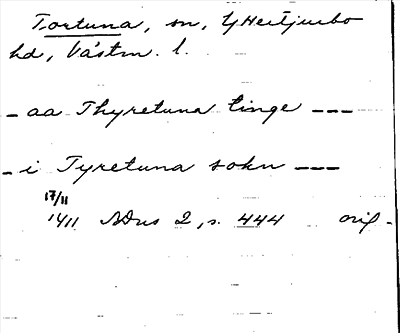 Tortuna, sn, Yttertjurbo
hd, Västm. l.
- aa Thyretuna tinge ---
- i Tyretuna sokn ---
17/11
1411 SDns 2, s. 444 orig.